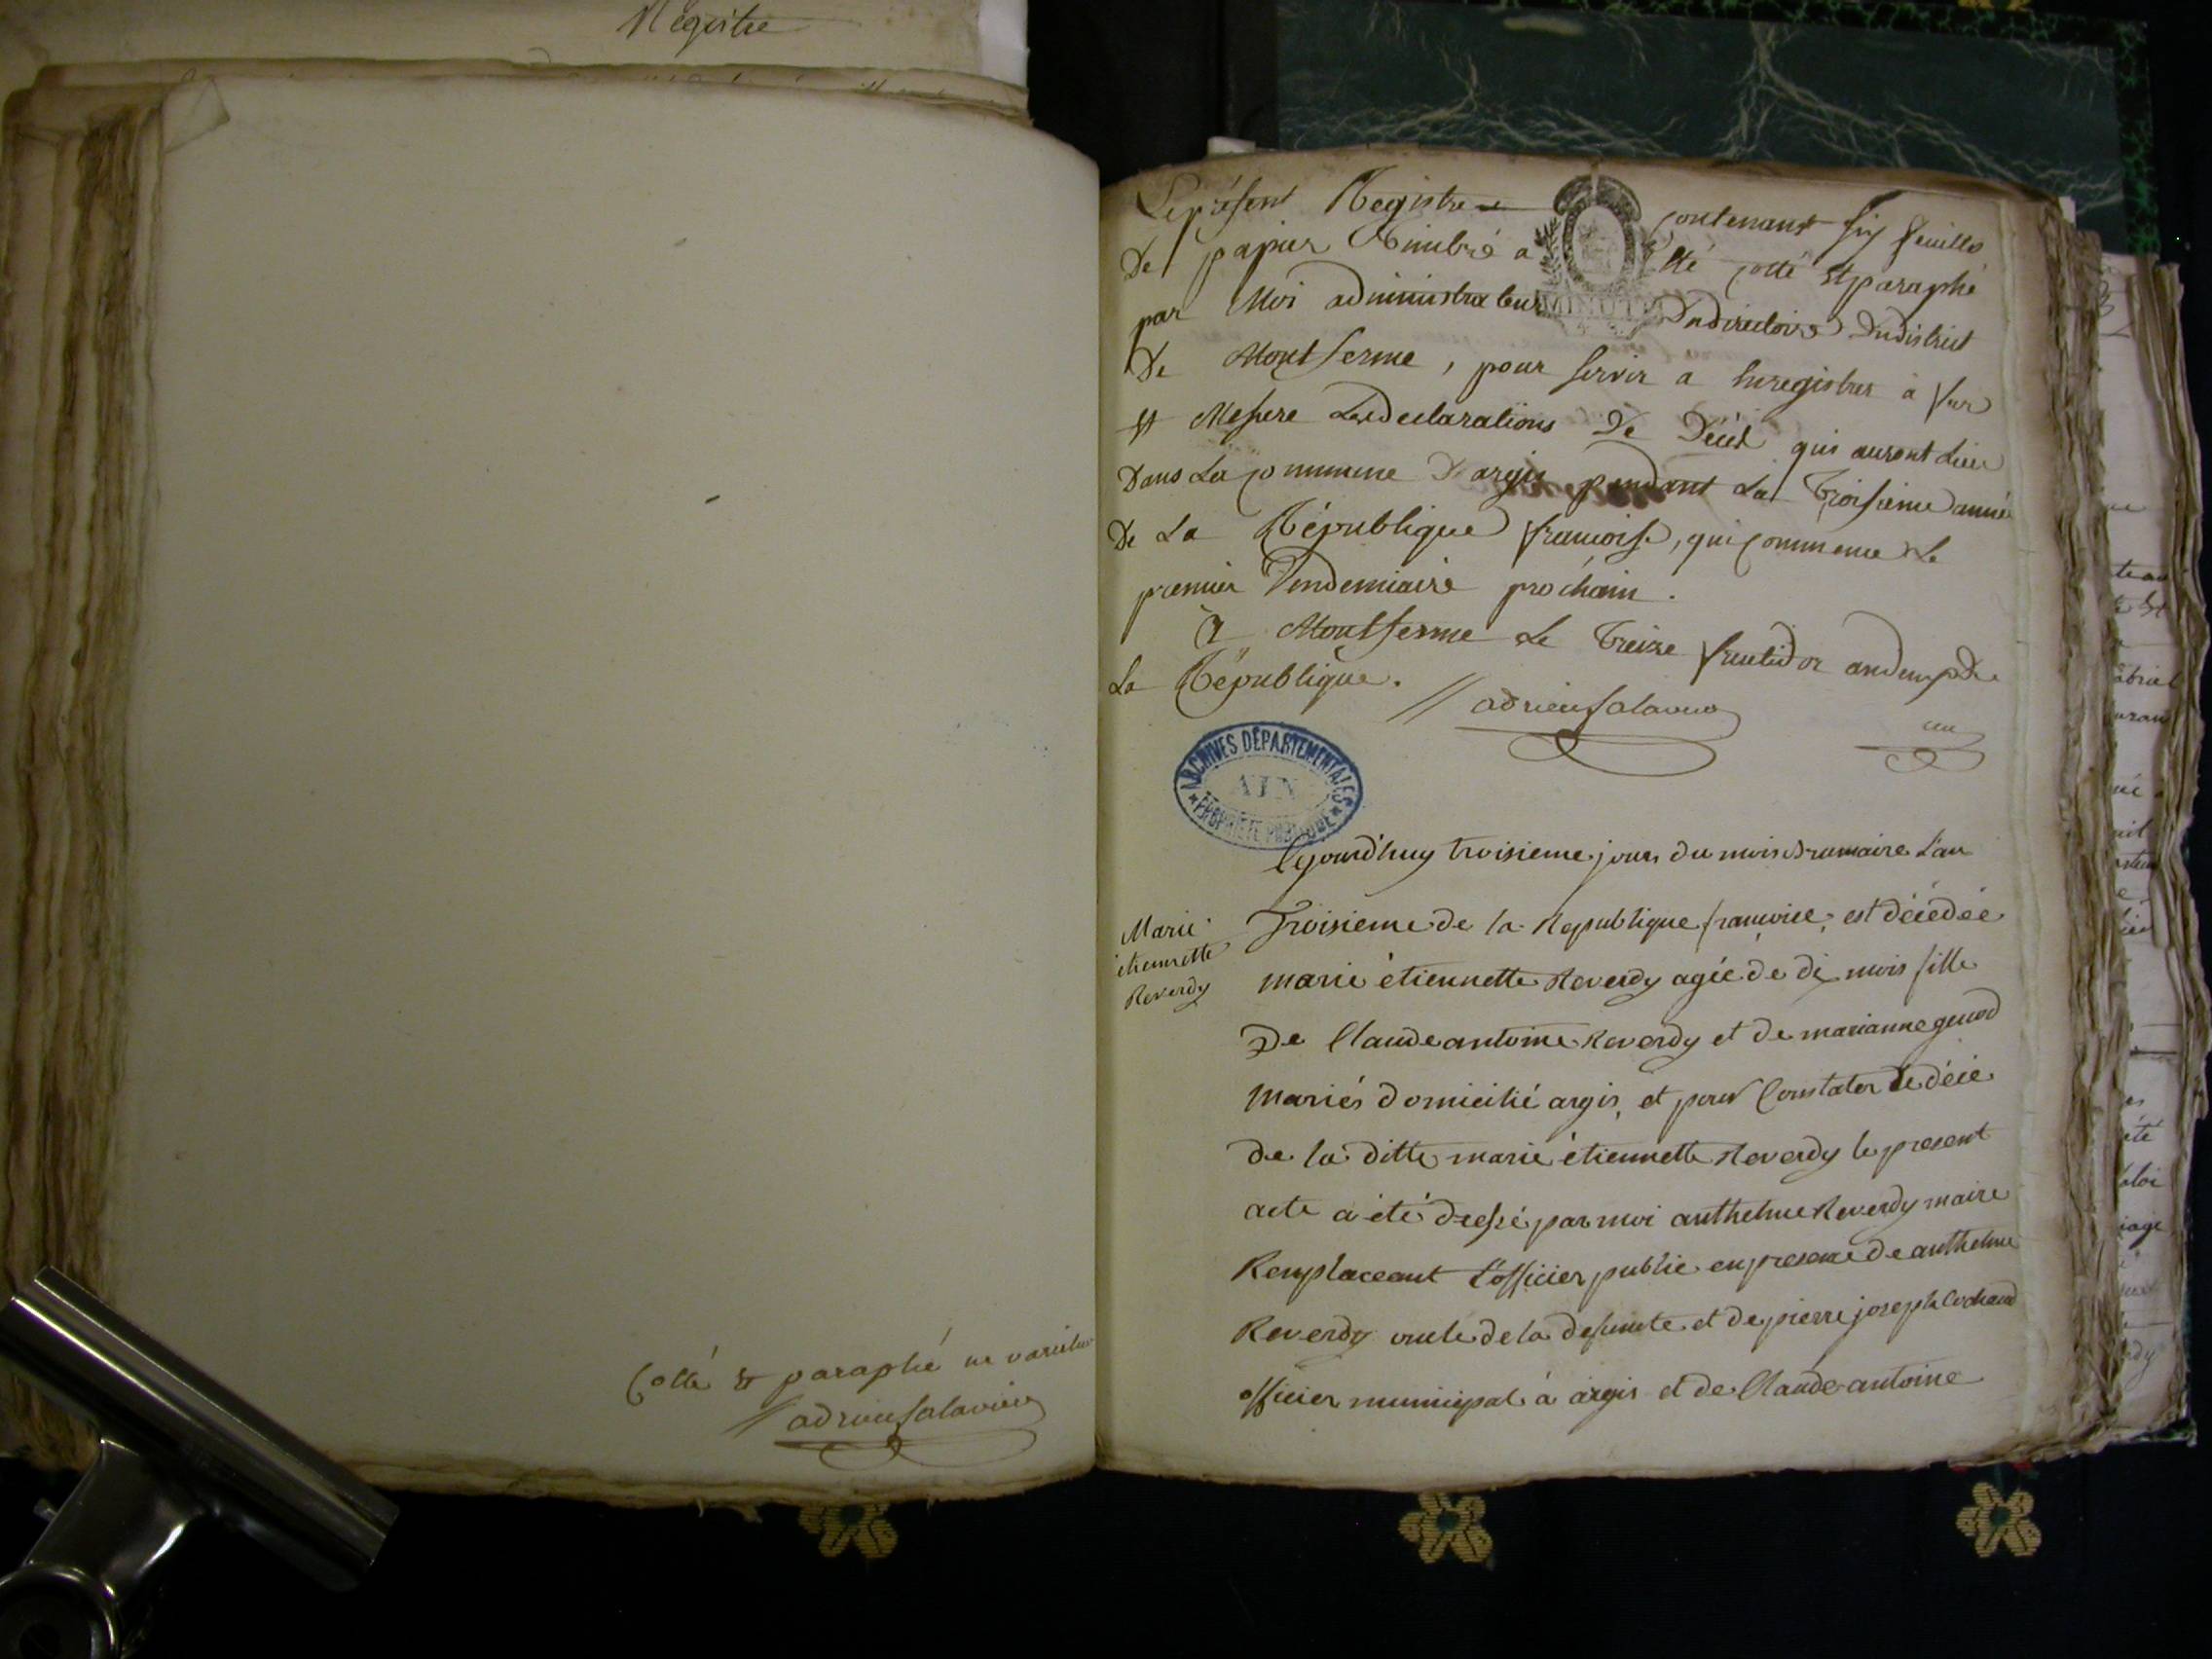 Registre
Cotté & paraphé ne varietur
adrien Salavin
Leprésent Registre contenant six feuilles
De papier Timbré a été cotté et paraphé
par Moi administrateur Dudirectoire Dudistrict
De Montferme, pour servir a Enregistrer à fur
et Mesure Lesdeclarations De Décet qui auront Lieu
Dans La Commune D'argis pendant La Troisieme année
De La République françoise, qui Commence Le
premier Vendemiaire prochain.
à Montferme Le Treize fructidor andeux De
La République.
adrien Salavin
un
MINUTE
ARCHIVES DÉPARTEMENTALES
AIN
PROPRIÉTÉ PUBLIQUE
Marie
étiennette
Reverdy
Cejourd'huy troisieme jours du mois Brumaire L'an
Troisieme de la Republique françoise, est décédée
marie étiennette Reverdy agée de di mois fille
De Claude antoine Reverdy et de marianne genod
mariés domicilié argis, et pour Constater le décé
de la ditte marie étiennette Reverdy le present
acte a été dressé par moi anthelme Reverdy maire
Remplaceant L'officier public en presence de anthelme
Reverdy oncle de la defunte et de pierre joseph Cochand
officier municipal à argis et de Claude antoine